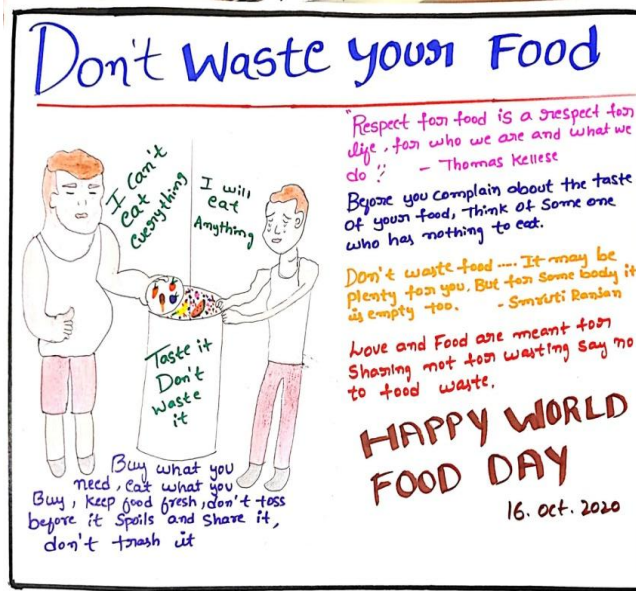 Don't Waste your Food
I Can't
eat
Everything
I will
eat
Anything
Taste it
Don't
waste
it
Buy what you
need, eat what you
Buy, keep food fresh, don't toss
before it spoils and share it,
don't trash it
"Respect for food is a respect for
life, for who we are and what we
do."
- Thomas Kellese
Before you complain about the taste
of your food, Think of some one
who has nothing to eat.
Don't waste food .... It may be
plenty for you, But for some body it
is empty too. - Smruti Ranjan
Love and Food are meant for
Sharing not for wasting say no
to food waste.
HAPPY WORLD
FOOD DAY
16. oct. 2020